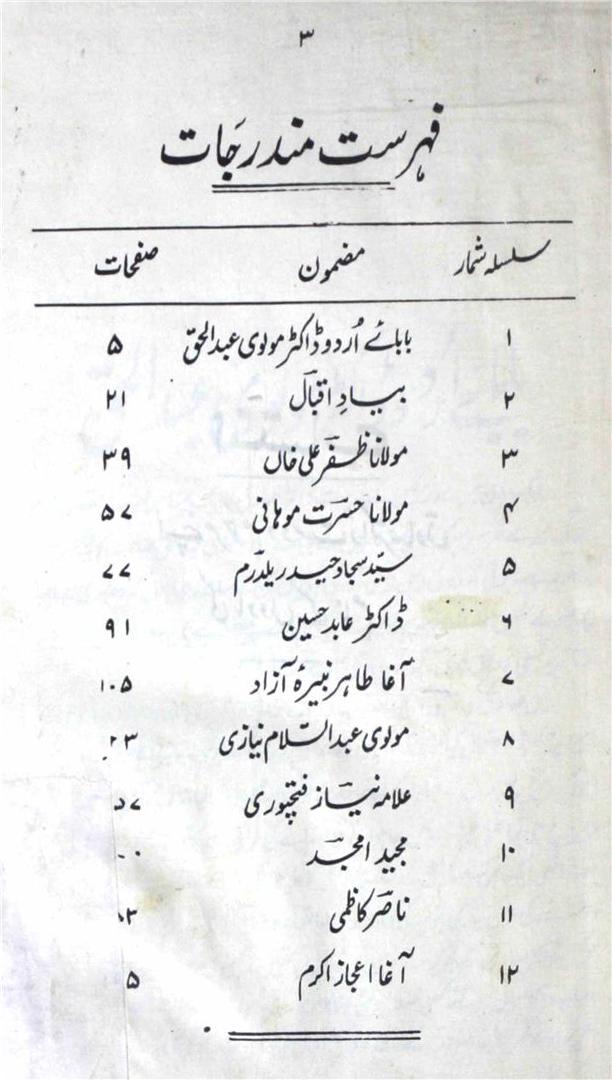 ۳
فہرست مندرجات
سلسلہ شمار مضمون صفحات
۱ بابائے اُردو ڈاکٹر مولوی عبدالحق ۵
۲ بیادِ اقبالؔ ۲۱
۳ مولانا ظفرؔ علی خاں ۳۹
۴ مولانا حسرتؔ موہانی ۵۷
۵ سیّد سجاد حیدر یلدرم ۷۷
۶ ڈاکٹر عابد حسین ۹۱
۷ آغا طاہر نبیرۂ آزاد ۱۰۵
۸ مولوی عبدالسّلام نیازی ۲۳
۹ علامہ نیازؔ فتحپوری ۷
۱۰ مجید امجدؔ ۰
۱۱ ناصرؔ کاظمی ۳
۱۲ آغا اعجاز اکرم ۵